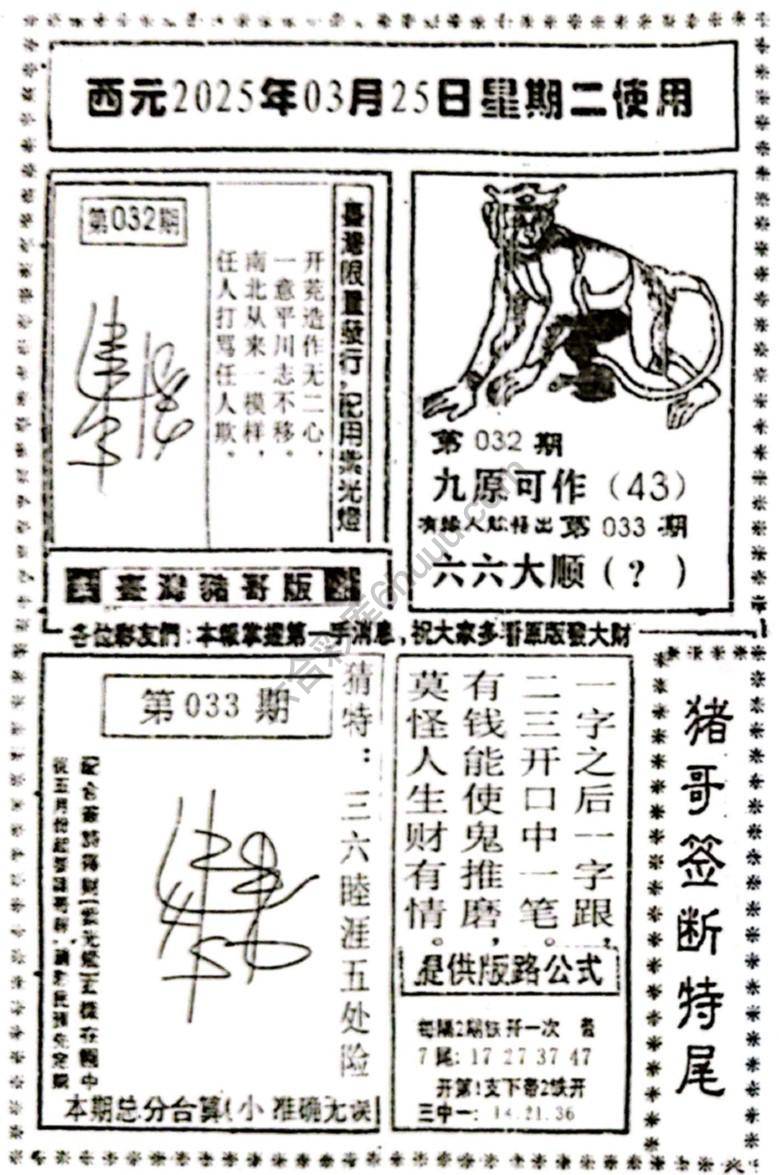 西元2025年03月25日星期二使用
第032期
开荒造作无二心，
一意平川志不移。
南北从来一模样，
任人打骂任人欺。
臺灣限量發行，配用紫光燈
臺灣豬哥版
第032期
九原可作（43）
有缘人能悟出第033期
六六大顺（?）
各位彩友們：本報掌握第一手消息，祝大家多看原版發大財
第033期
猜特：三六睦涯五处险
本期总分合算(小 准确无误
一字之后一字跟，
二三开口中一笔。
有钱能使鬼推磨，
莫怪人生财有情。
提供版路公式
每隔2期铁开一次
7尾：17 27 37 47
开第1支下带2铁开
三中一：14.21.36
猪哥签断特尾